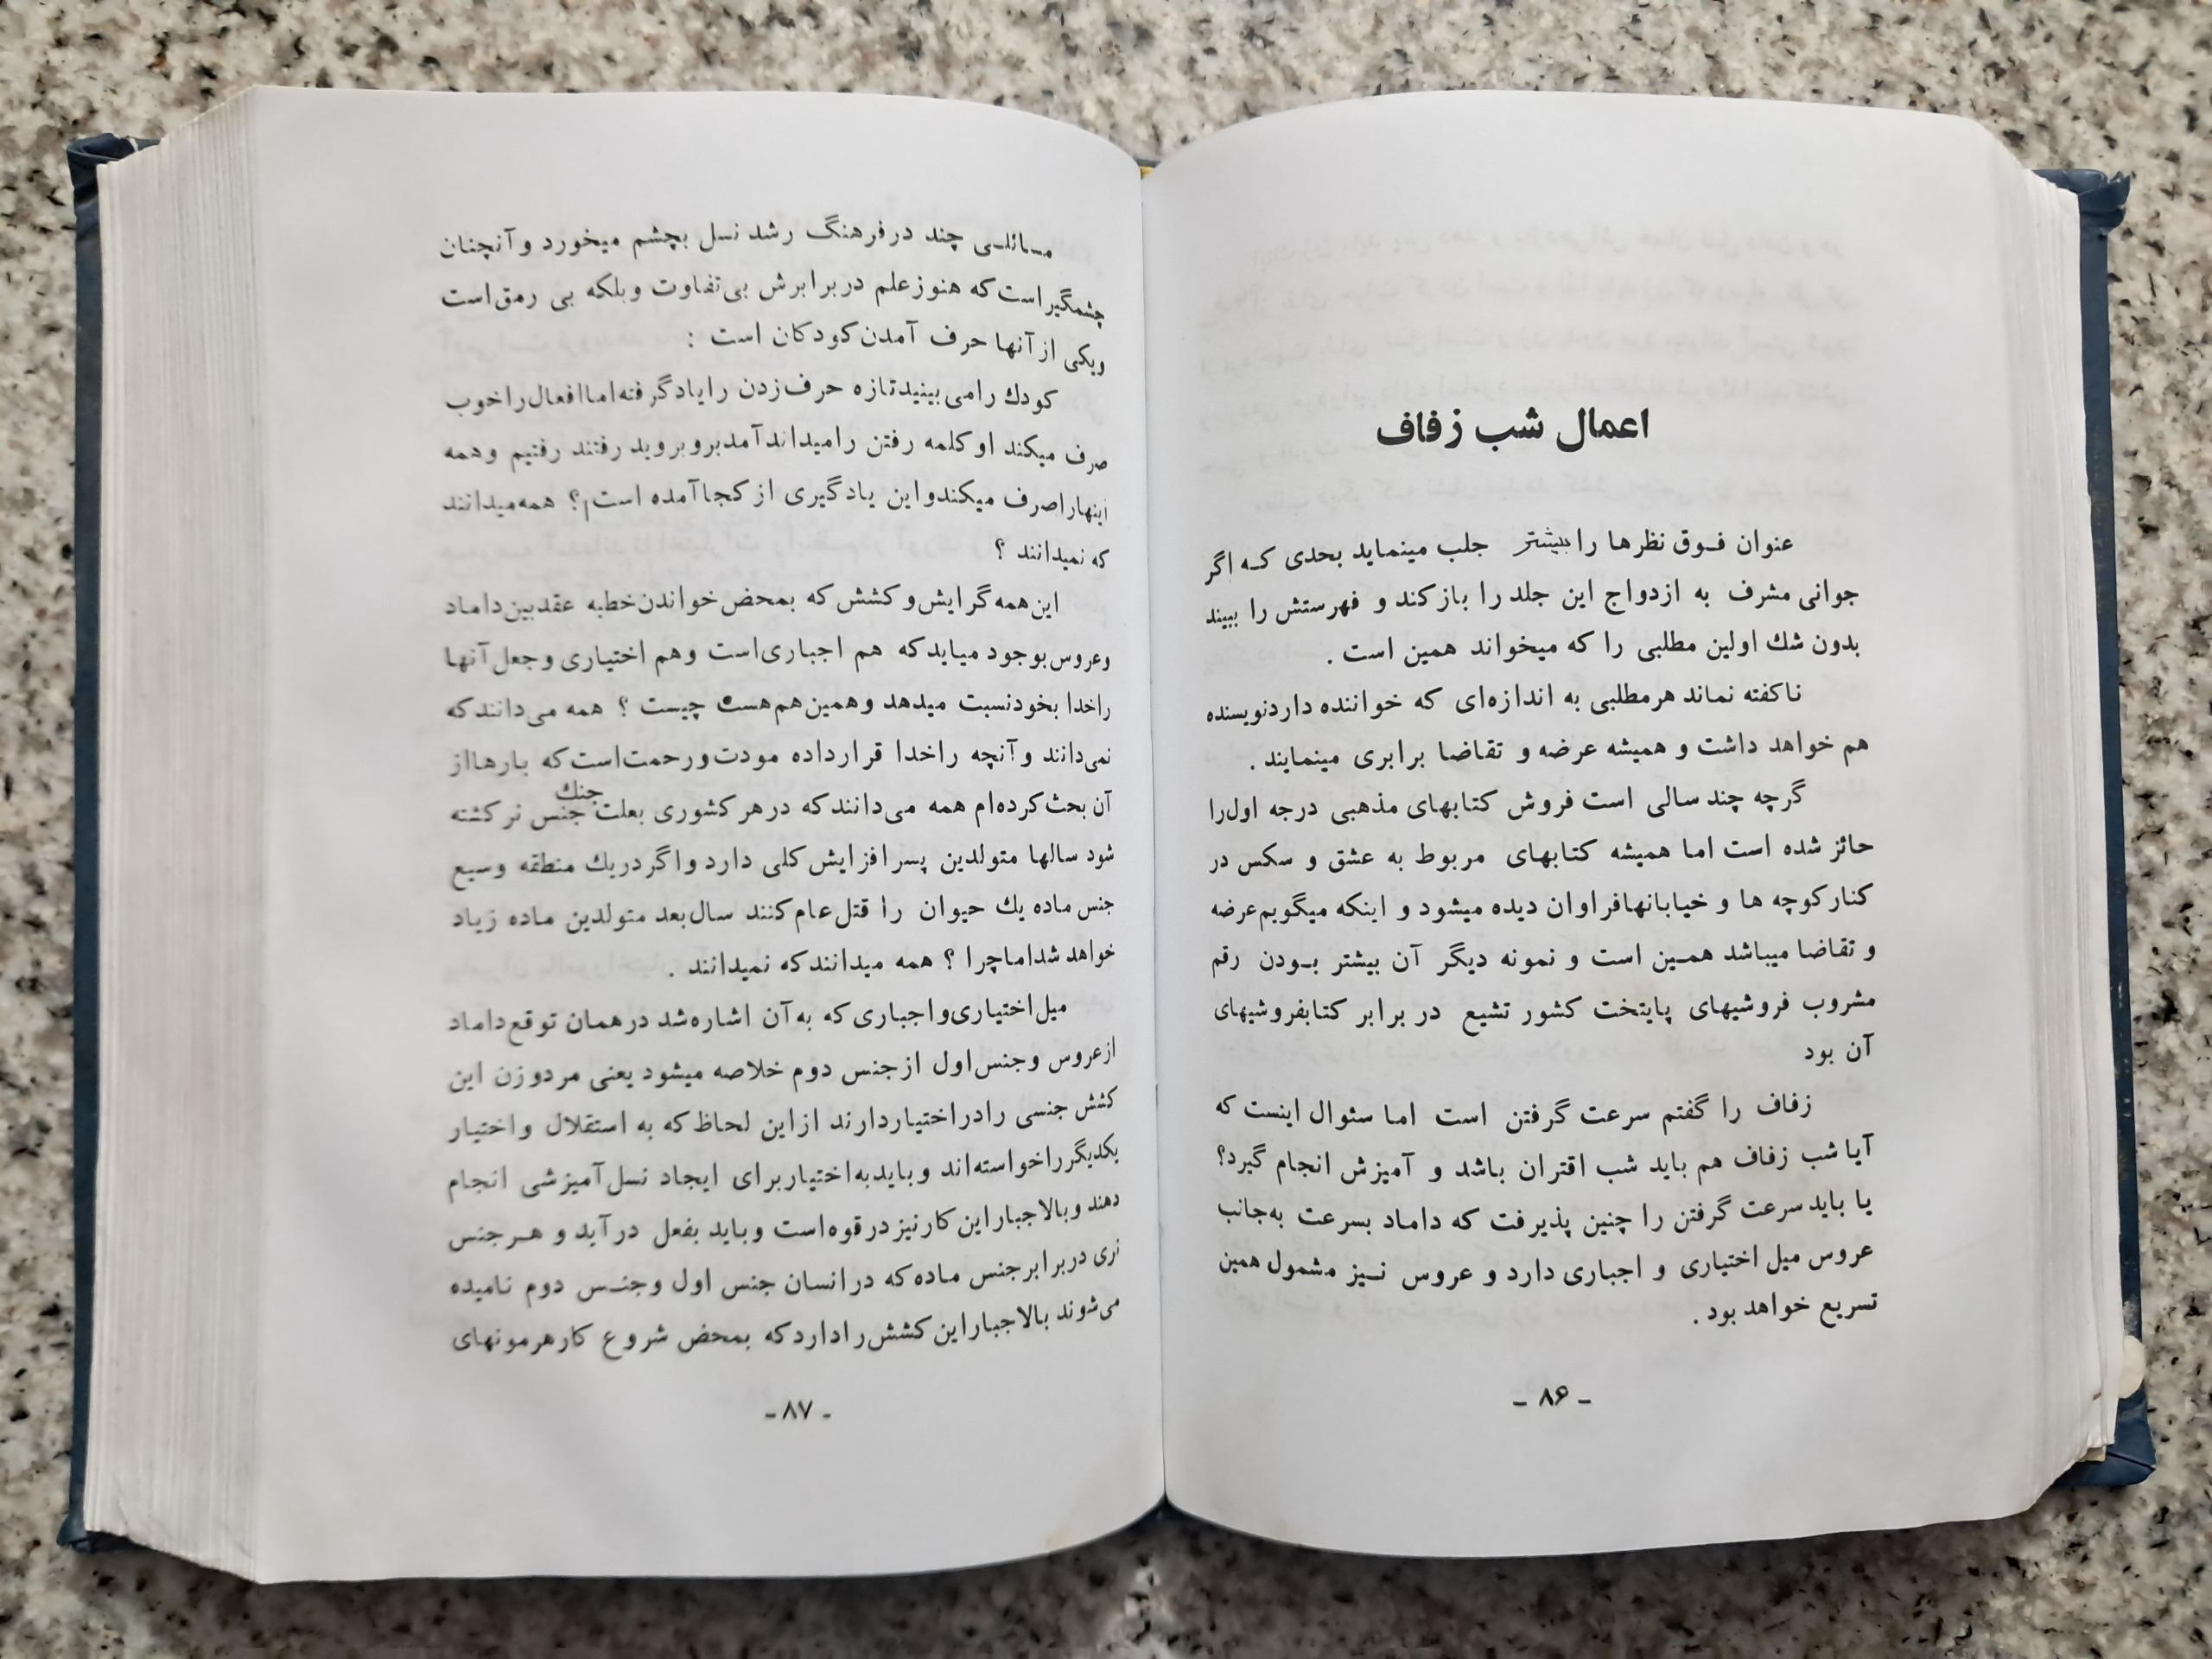 اعمال شب زفاف
عنوان فـوق نظرها را بیشتر جلب مینماید بحدی کـه اگر
جوانی مشرف به ازدواج این جلد را بازکند و فهرستش را ببیند
بدون شك اولین مطلبی را که میخواند همین است .
ناکفته نماند هرمطلبی به اندازه‌ای که خواننده داردنویسنده
هم خواهد داشت و همیشه عرضه و تقاضا برابری مینمایند .
گرچه چند سالی است فروش کتابهای مذهبی درجه اول‌را
حائز شده است اما همیشه کتابهای مربوط به عشق و سکس در
کنارکوچه ها و خیابانهافراوان دیده میشود و اینکه میگویم‌عرضه
و تقاضا میباشد همـین است و نمونه دیگر آن بیشتر بـودن رقم
مشروب فروشیهای پایتخت کشور تشیع در برابر کتابفروشیهای
آن بود
زفاف را گفتم سرعت گرفتن است اما سئوال اینست که
آیا شب زفاف هم باید شب اقتران باشد و آمیزش انجام گیرد؟
یا باید سرعت گرفتن را چنین پذیرفت که داماد بسرعت به‌جانب
عروس میل اختیاری و اجباری دارد و عروس نـیز مشمول همین
تسریع خواهد بود .
ـ ۸۶ ـ
مسائلـی چند درفرهنگ رشد نسل بچشم میخورد وآنچنان
چشمگیراست‌که هنوزعلم دربرابرش بی‌تفاوت وبلکه بی رمق‌است
ویکی ازآنها حرف آمدن‌کودکان است :
کودك رامی‌بینیدتازه حرف‌زدن رایادگرفته‌اماافعال‌راخوب
صرف میکند اوکلمه رفتن رامیداندآمدبروبروید رفتند رفتیم وهمه
اینهاراصرف میکندواین یادگیری ازکجاآمده است؟ همه‌میدانند
که نمیدانند ؟
این‌همه‌گرایش‌وکشش‌که بمحض‌خواندن‌خطبه عقدبین‌داماد
وعروس‌بوجود میایدکه هم اجباری‌است وهم اختیاری وجعل‌آنها
راخدا بخودنسبت میدهد وهمین‌هم‌هست چیست ؟ همه می‌دانندکه
نمی‌دانند وآنچه راخدا قرارداده مودت‌ورحمت‌است‌که بارهااز
آن بحث‌کرده‌ام همه می‌دانندکه درهرکشوری بعلت جنگ جنس نرکشته
شود سالها متولدین پسرافزایش‌کلی دارد واگردریك منطقه وسیع
جنس ماده یك حیوان را قتل‌عام‌کنند سال‌بعد متولدین ماده زیاد
خواهد شداماچرا ؟ همه میدانندکه نمیدانند .
میل‌اختیاری‌واجباری‌که به‌آن اشاره‌شد درهمان توقع‌داماد
ازعروس وجنس‌اول ازجنس دوم خلاصه میشود یعنی مردوزن این
کشش جنسی رادراختیاردارند ازاین لحاظ‌که به استقلال واختیار
یکدیگرراخواسته‌اند وبایدبه‌اختیاربرای ایجاد نسل‌آمیزشی انجام
دهند وبالاجباراین‌کارنیزدرقوه‌است وباید بفعل درآید و هـرجنس
نری دربرابرجنس ماده‌که درانسان جنس اول وجنـس دوم نامیده
می‌شوند بالاجباراین‌کشش‌راداردکه بمحض شروع کارهرمونهای
ـ ۸۷ ـ